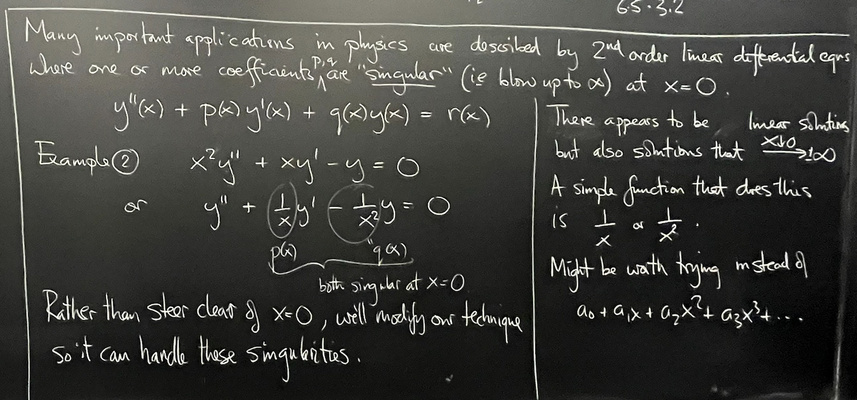 65.3.2
Many important applications in physics are described by 2nd order linear differential eqns
where one or more coefficients p,q are "singular" (ie blow up to ∞) at x=0.
y''(x) + p(x)y'(x) + q(x)y(x) = r(x)
Example ② x²y'' + xy' - y = 0
or y'' + 1/x y' - 1/x² y = 0
p(x) "q(x)
both singular at x=0
Rather than steer clear of x=0, we'll modify our technique
so it can handle these singularities.
There appears to be linear solutions
but also solutions that x↓0 → ±∞
A simple function that does this
is 1/x or 1/x².
Might be worth trying instead of
a₀ + a₁x + a₂x² + a₃x³ + ...